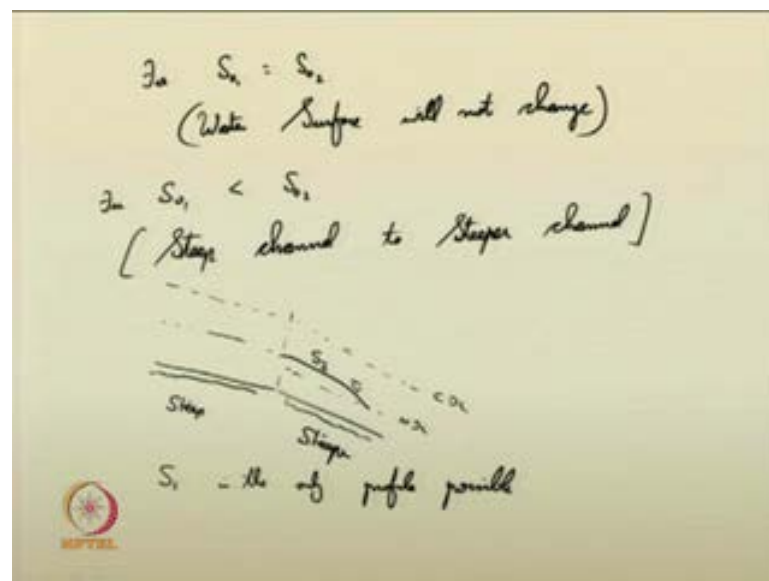 For S₀₁ = S₀₂
(Water Surface will not change)
For S₀₁ < S₀₂
[Steep channel to Steeper channel]
S₂
CDL
NDL
Steep
Steeper
S₂ - the only profile possible
NPTEL